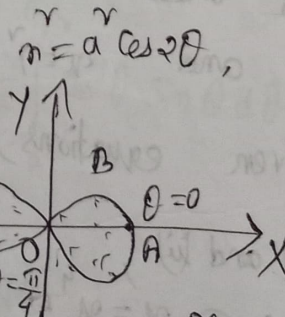 r² = a² Cos2θ,
Y
B
θ = 0
O
A
X
= π/4